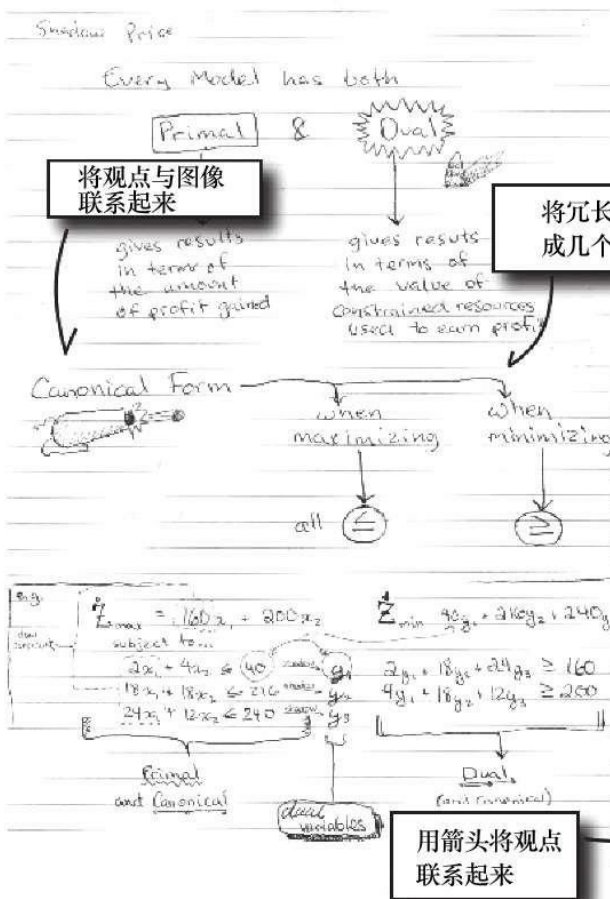 Shadow Price
Every Model has both
Primal & Dual
将观点与图像
联系起来
将冗长
成几个
gives results
in terms of
the amount
of profit gained
gives resuts
in terms of
the value of
constrained resources
used to earn profit
Canonical Form
when
maximizing
when
minimizing
all ≤
≥
e.g.
dual
Zmax = 160x₁ + 200x₂
subject to...
2x₁ + 4x₂ ≤ 40 shadow y₁
18x₁ + 18x₂ ≤ 216 shadow y₂
24x₁ + 12x₂ ≤ 240 shadow y₃
Zmin 40y₁ + 216y₂ + 240y
2y₁ + 18y₂ + 24y₃ ≥ 160
4y₁ + 18y₂ + 12y₃ ≥ 200
Primal
and Canonical
dual
variables
Dual
(and canonical)
用箭头将观点
联系起来